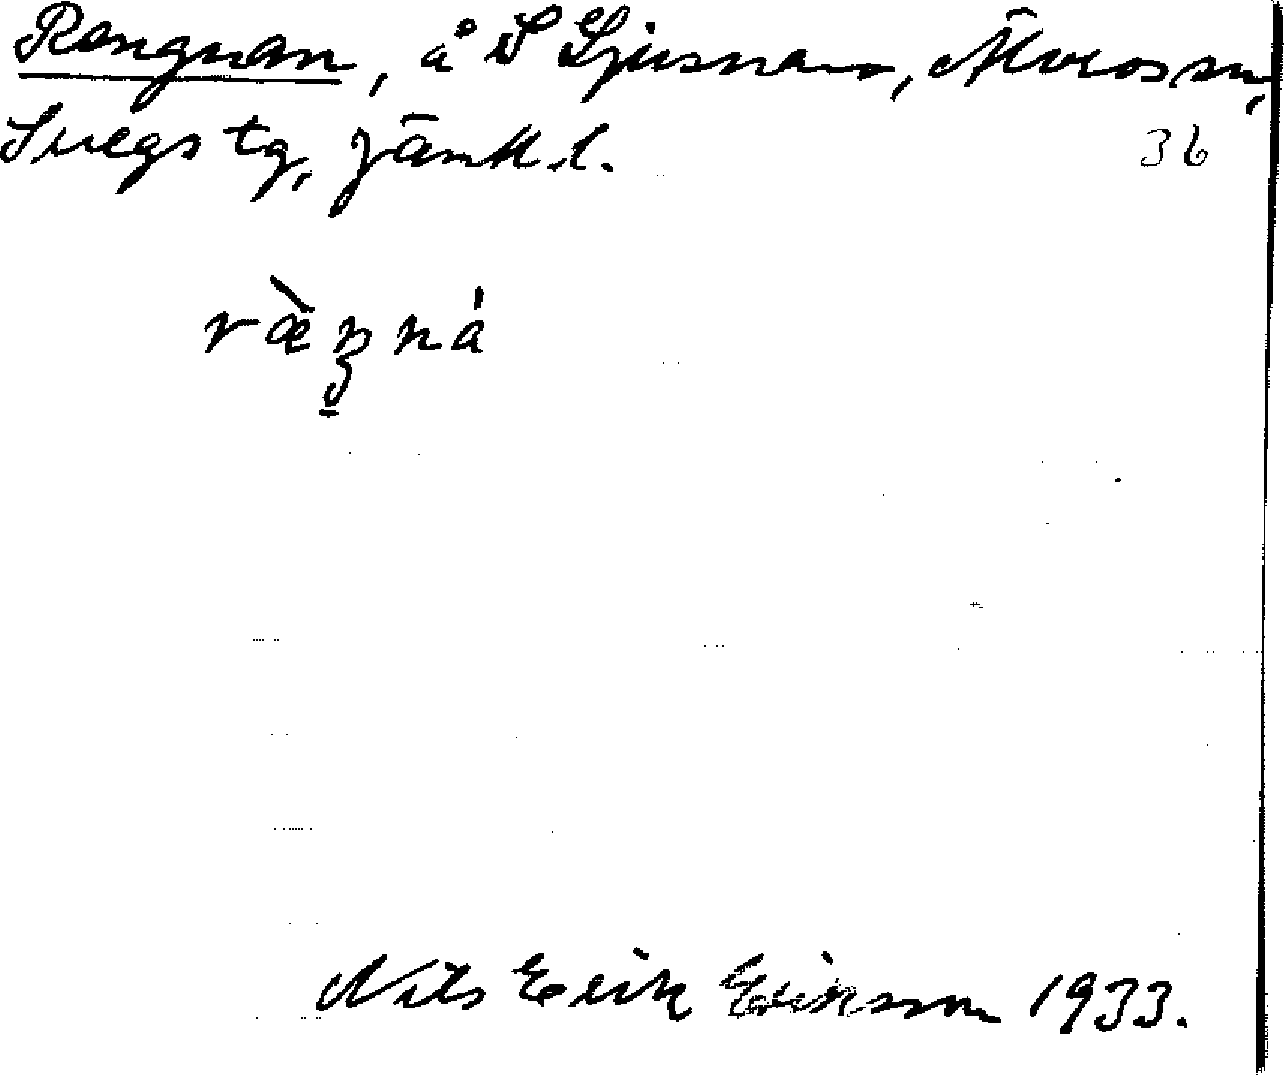 Rengnan, å S Ljusnan, Älvros sn,
Svegs tg, Jämtl. l. 36
ræ̀ŋná
Nils Erik Eriksson 1933.